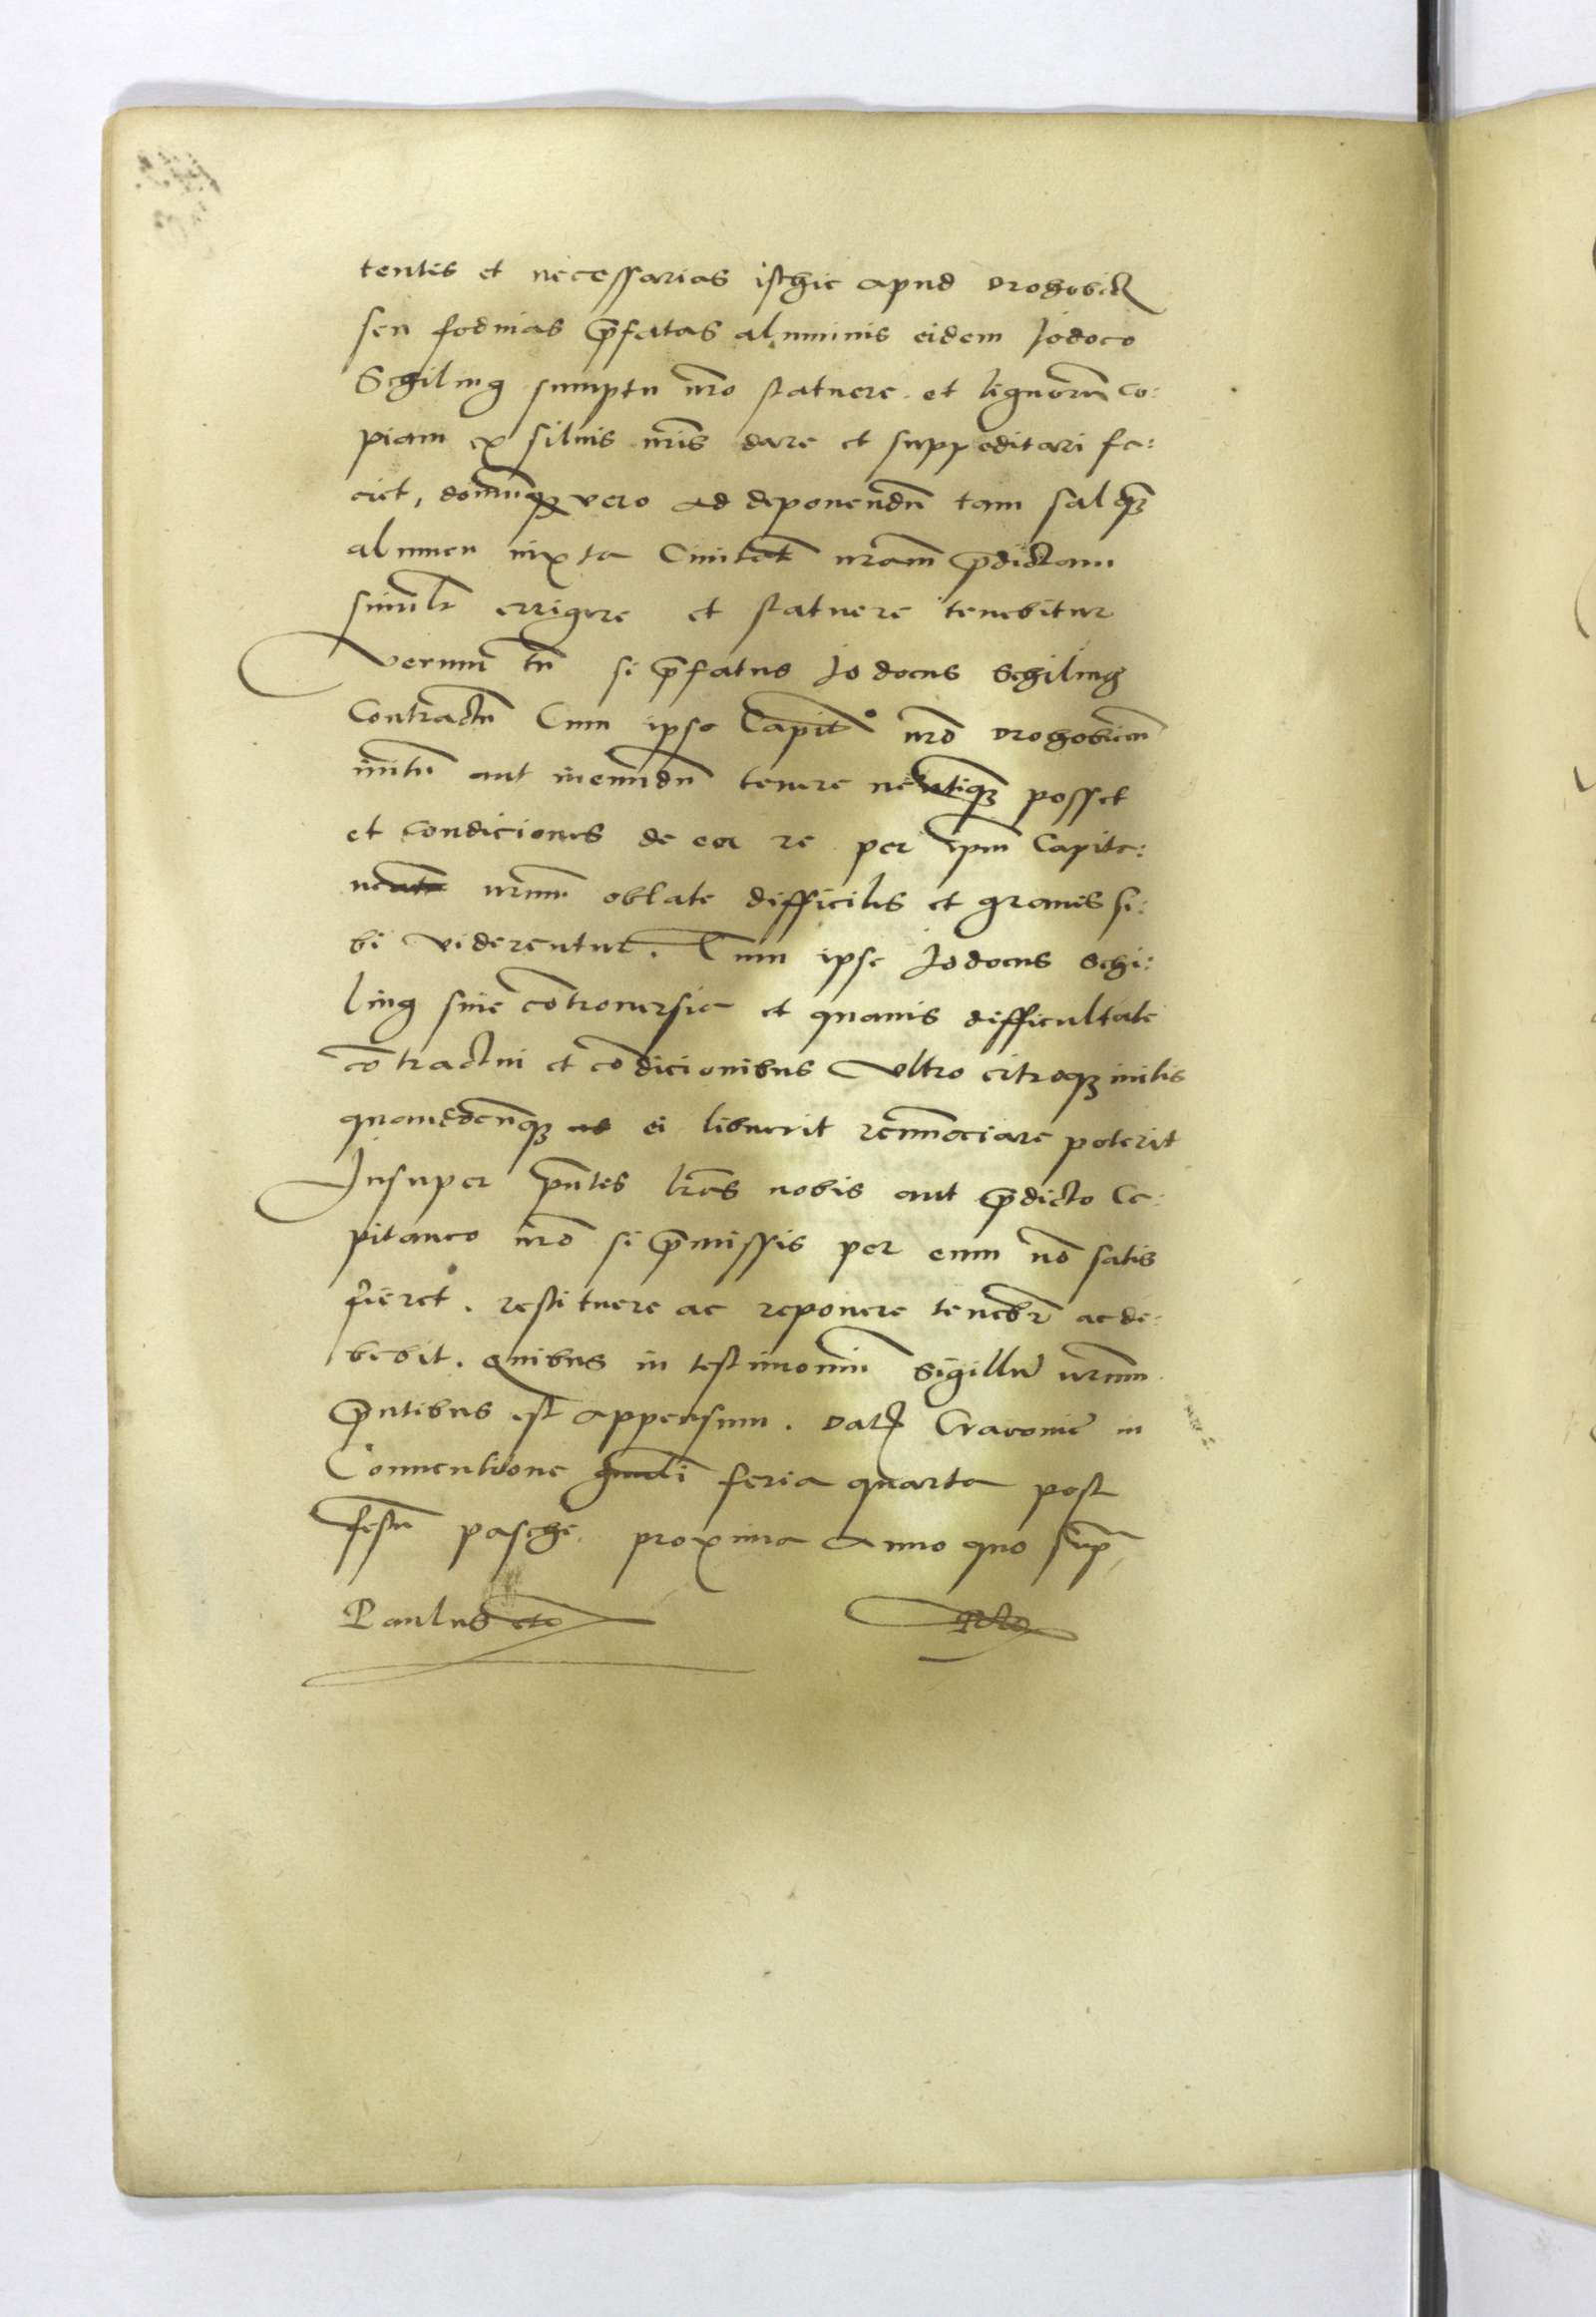 tentes et necessarias isthic apud Drohobicz
seu fodinas p̄fatas aluminis eidem Jodoco
Schiling sumptu nr̄o statuere et lignorum̄ co:
piam ex siluis nr̄is dare et suppeditari fa:
ciet, domūq; vero ad deponendū tam sal q̄
alumen iuxta Ciuitat̄ nr̄am p̄dictam
similr̄ errigere et statuere tenebitur
Verum tn̄ si p̄fatus Jodocus Schiling
Contractū Cum ipso Capit° nr̄o Drohobicen̄
initū aut ineundū tenere neutiq̄ posset
et condiciones de ea re per ipm̄ Capita:
neum nr̄um oblate difficiles et graues si:
bi viderentur. Tum ipse Jodocus Schi:
ling sine cōtrouersia et quauis difficultate
cōtractui et cōdicionibus vltro citroq; initis
quandocūq; ei libuerit renūnciare poterit
Insuper p̄ntes lr̄as nobis aut p̄dicto Ca:
pitaneo nr̄o si p̄missis per eum nō satis
fieret. restituere ac reponere tenebr̄ ac de:
bebit. Quibus in testimoniū Sigillū nr̄um
p̄ntibus est appensum. Dat̄ Cracouie in
Conuentione gn̄ali feria quarta post
festū pasche proxima Anno quo sup̄
Paulus etc